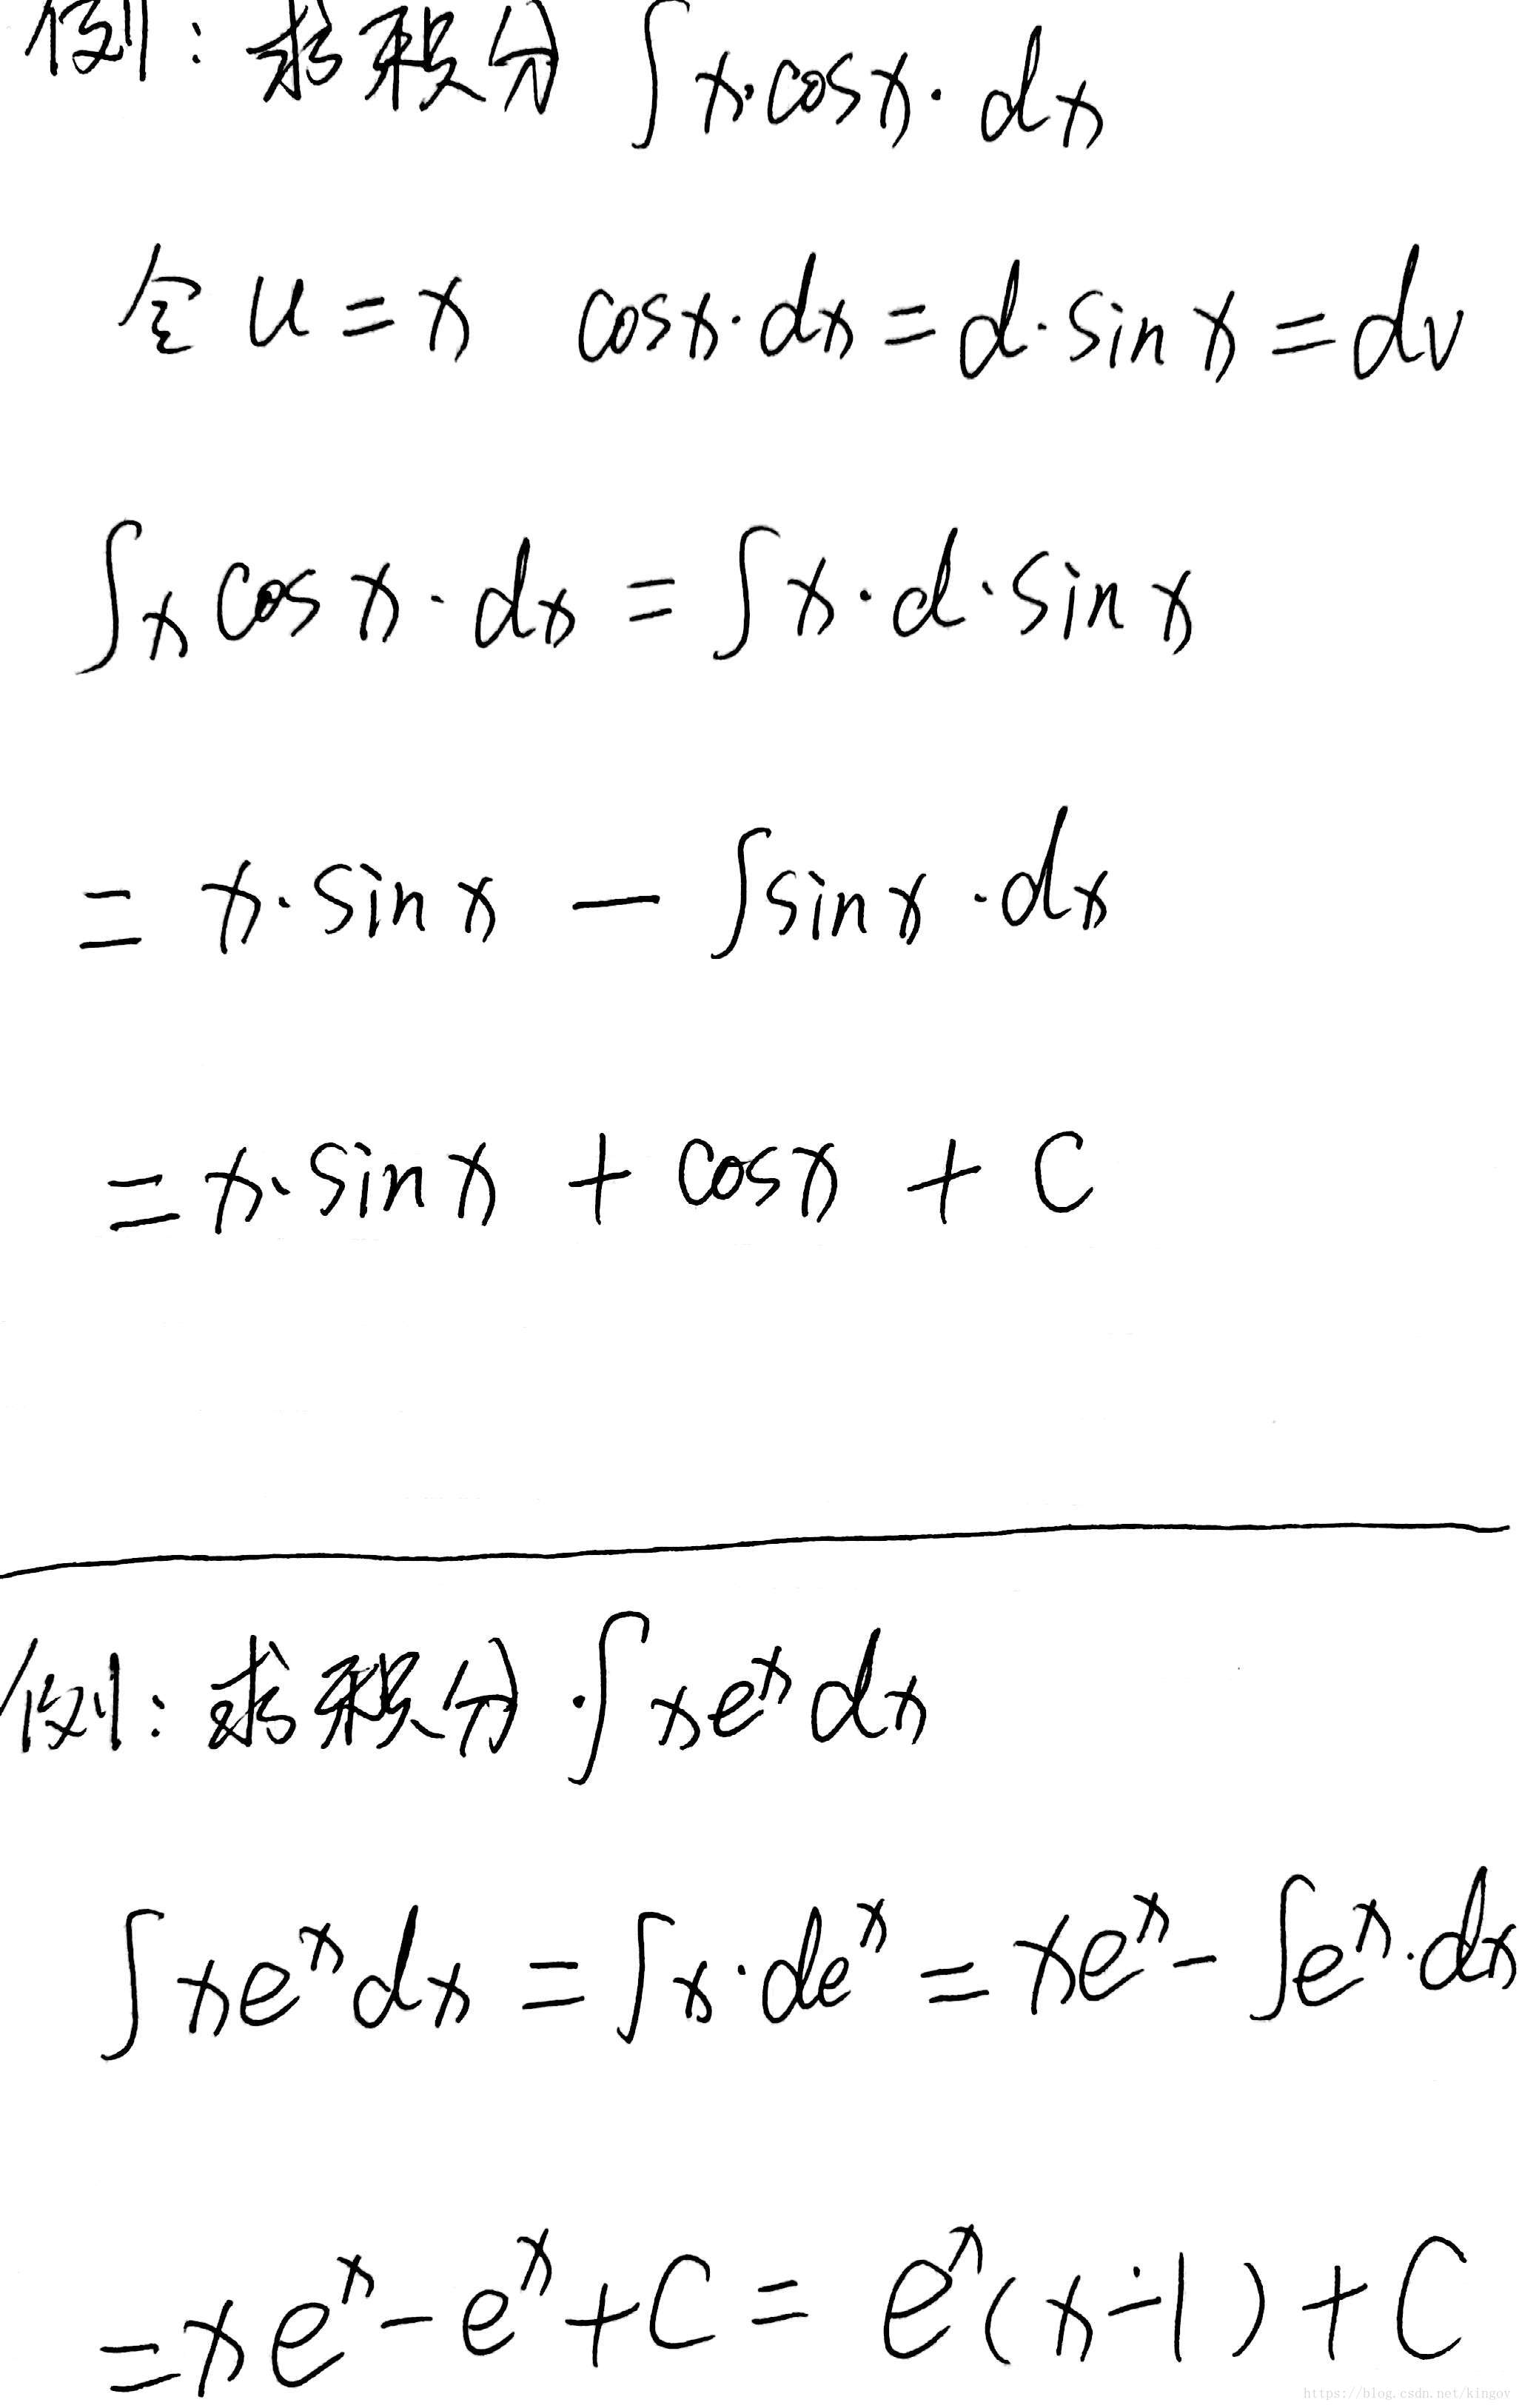 例：求积分 ∫x·cosx·dx
令 u=x cosx·dx=d·sinx=dv
∫x cosx·dx=∫x·d·sinx
=x·sinx-∫sinx·dx
=x·sinx+cosx+C
例：求积分·∫xeˣdx
∫xeˣdx=∫x·deˣ=xeˣ-∫eˣ·dx
=xeˣ-eˣ+C=eˣ(x-1)+C
https://blog.csdn.net/kingov